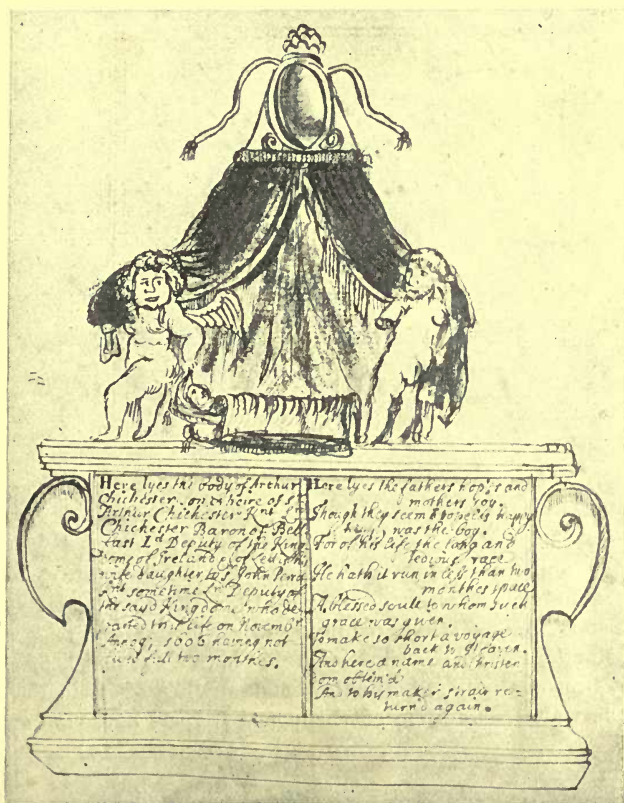 Here lyes the body of Arthur
Chichester son & haire of Sr
Arthur Chichester Knt Lrd
Chichester Baron of Bell
fast Ld Deputy of this King
dome of Ireland & of Ledi his
daughter to Sr John Perro
Knt sometime Lrd Deputy of
the sayd Kingdome who de
parted this life on Novembr
1606 haveing not
full two monthes.
Here lyes the fathers hope's and
mothers Joy.
Though they seem happy
was the boy.
For of his life the long and
tedious race
He hath it run in less than two
monthes space
A blessed soule to whom such
grace was given.
To make so short a voyage
back to Heaven.
And here a name and christen
dom obtein'd
And to his maker strait re=
turn'd again.